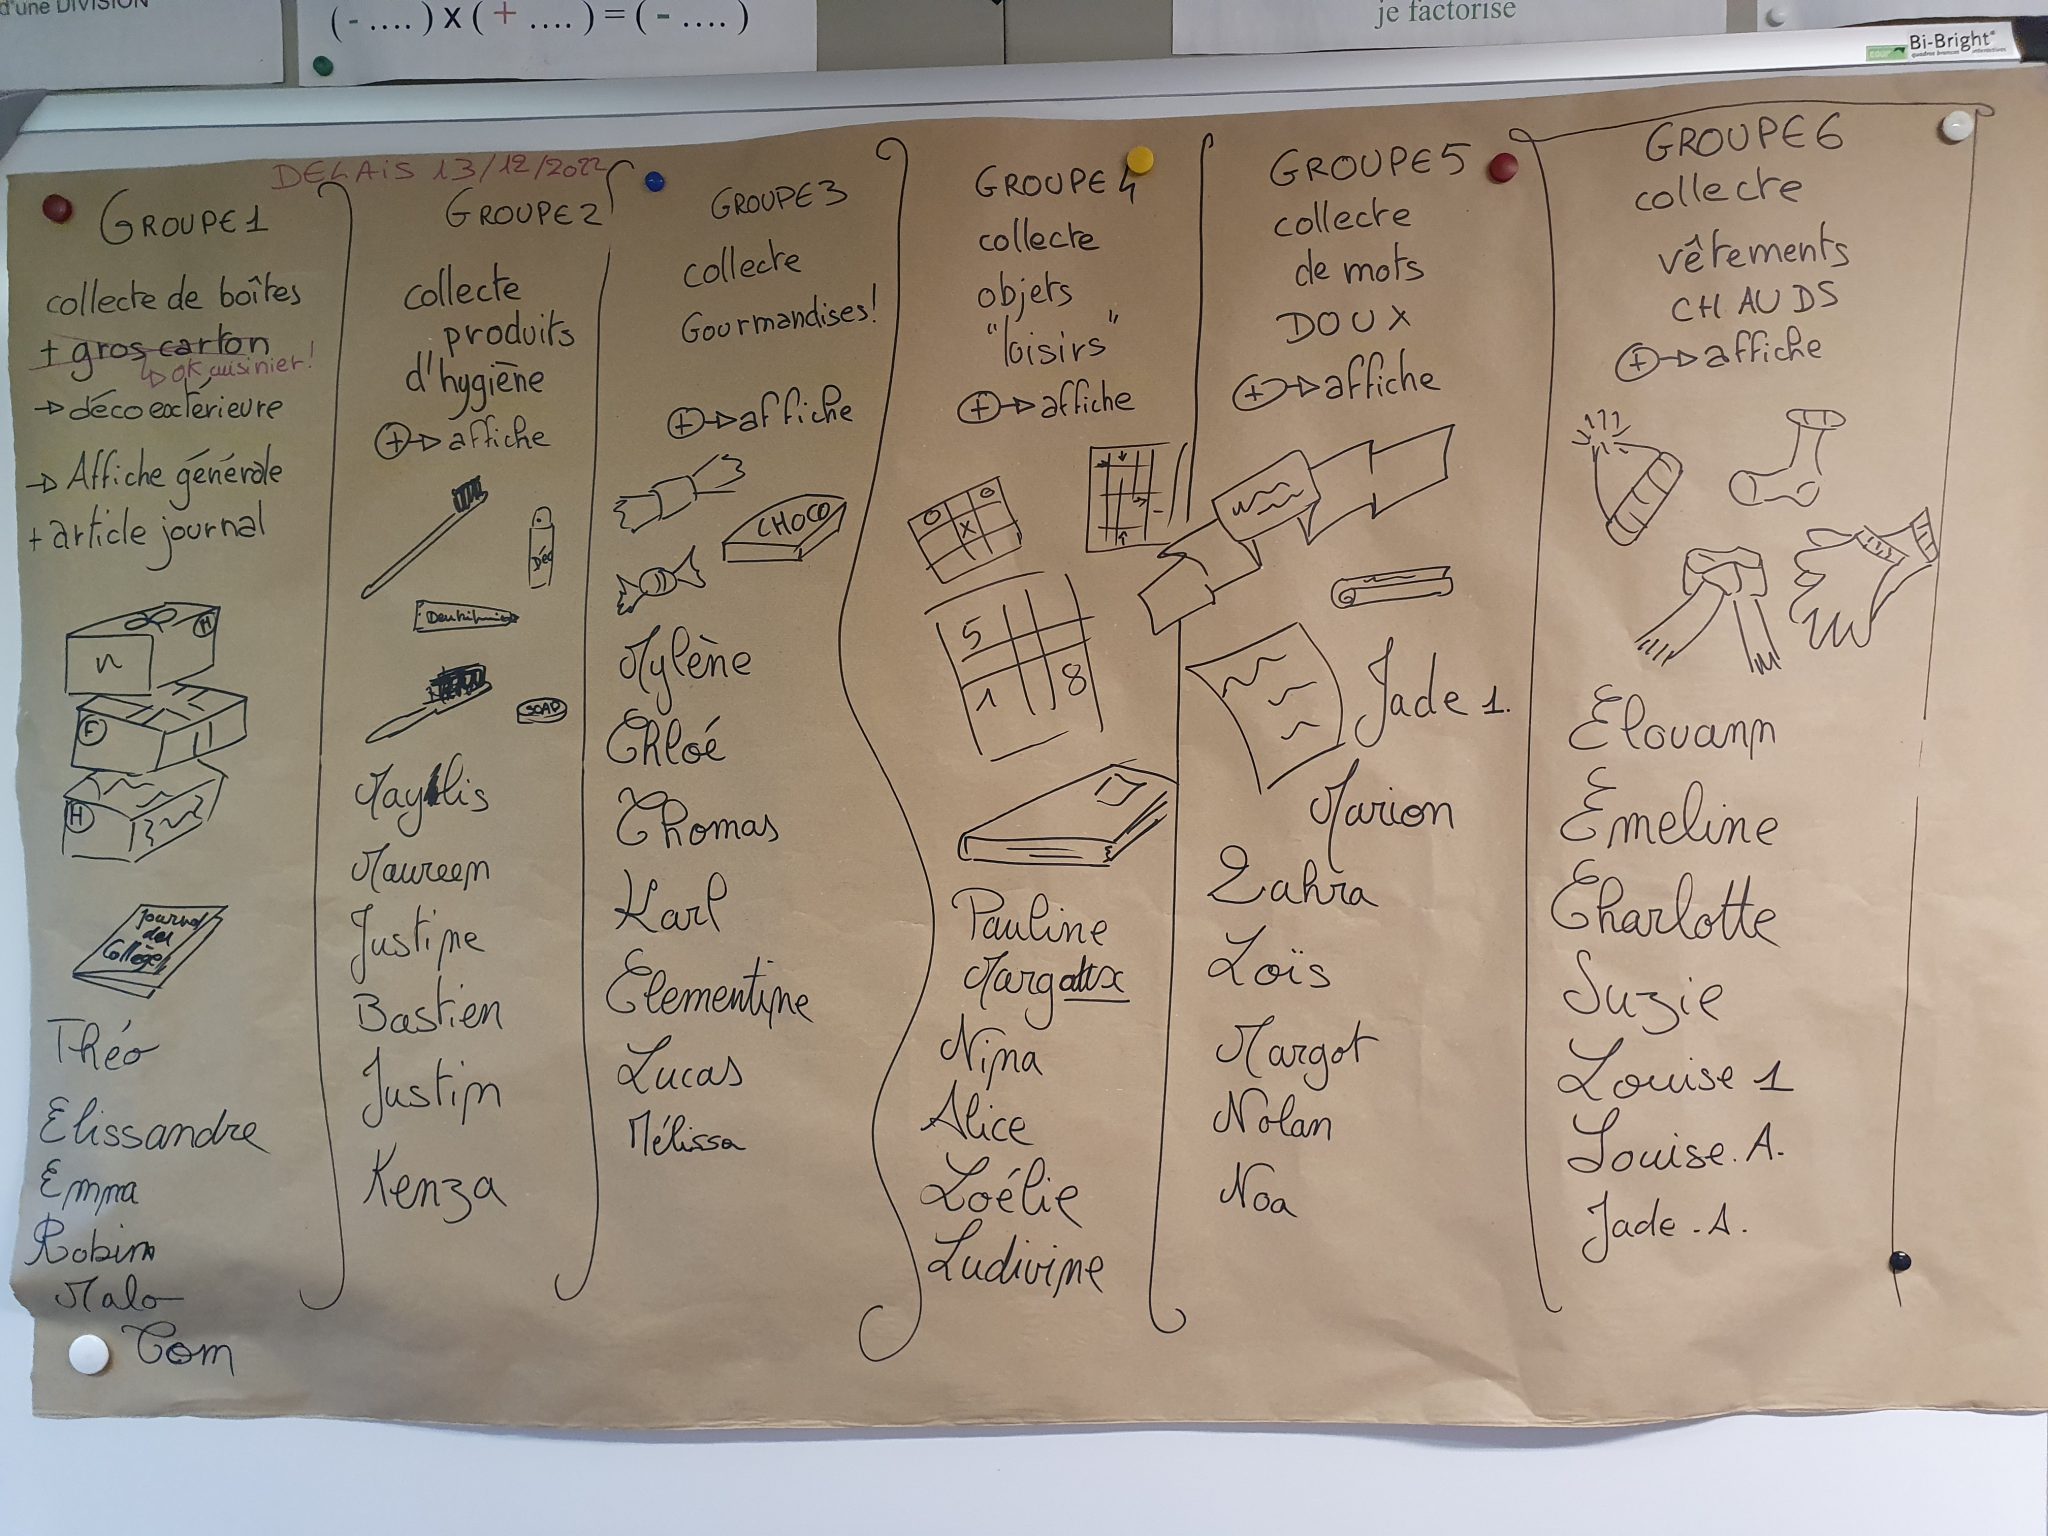 d'une DIVISION
(- ....) x (+ ....) = (- ....)
je factorise
Bi-Bright
DELAIS 13/12/2022
GROUPE 1
collecte de boîtes
+ gros carton
→ OK cuisinier!
→ déco extérieure
→ Affiche générale
+ article journal
H
n
F
H
Journal
des
Collèges
Théo
Elissandre
Emma
Robin
Malo
Tom
GROUPE 2
collecte
produits
d'hygiène
+ → affiche
Déo
SOAP
Mayllis
Maureen
Justine
Bastien
Justin
Kenza
GROUPE 3
collecte
Gourmandises!
+ → affiche
CHOCO
Mylène
Chloé
Thomas
Karl
Clementine
Lucas
Mélissa
GROUPE 4
collecte
objets
"loisirs"
+ → affiche
O
O X
5
1 8
Pauline
Margaux
Nina
Alice
Loélie
Ludivine
GROUPE 5
collecte
de mots
DOUX
+ → affiche
Jade 1.
Marion
Zahra
Loïs
Margot
Nolan
Noa
GROUPE 6
collecte
vêtements
CHAUDS
+ → affiche
Elouann
Emeline
Charlotte
Suzie
Louise 1
Louise. A.
Jade. A.